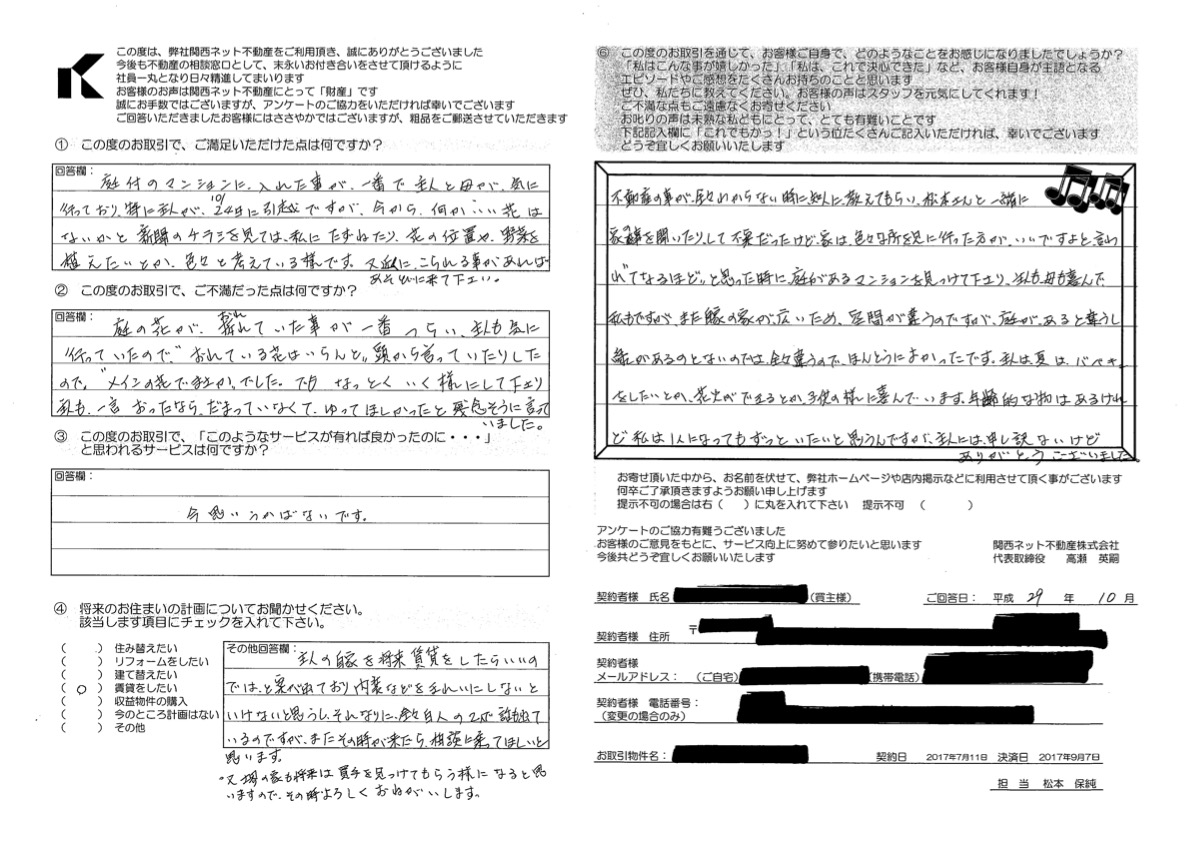 この度は、弊社関西ネット不動産をご利用頂き、誠にありがとうございました
今後も不動産の相談窓口として、末永いお付き合いをさせて頂けるように
社員一丸となり日々精進してまいります
お客様のお声は関西ネット不動産にとって「財産」です
誠にお手数ではございますが、アンケートのご協力をいただければ幸いでございます
ご回答いただきましたお客様にはささやかではございますが、粗品をご郵送させていただきます
① この度のお取引で、ご満足いただけた点は何ですか?
回答欄:
庭付のマンションに、入れた事が、一番で主人と母が、気に
行っており、特に主人が、10/24日に引越ですが、今から、何かいい花は
ないかと新聞のチラシを見ては、私にたずねたり、花の位置や、野菜を
植えたいとか、色々と考えている様です。又近に、こられる事があれば
あそびに来て下さい。
② この度のお取引で、ご不満だった点は何ですか?
回答欄:
庭の花が、おれていた事が一番つらい、主人も気に
行っていたので、"おれている花はいらんと"頭から言っていたりした
ので、"メインの花でまえか。でした。でもなっとくいく様にして下さり
私も、一言おったなら、だまっていなくて、ゆってほしかったと残念そうに言って
いました。
③ この度のお取引で、「このようなサービスが有れば良かったのに・・・」
と思われるサービスは何ですか?
回答欄:
今思いうかばないです。
④ 将来のお住まいの計画についてお聞かせください。
該当します項目にチェックを入れて下さい。
( ) 住み替えたい
( ) リフォームをしたい
( ) 建て替えたい
( ○ ) 賃貸をしたい
( ) 収益物件の購入
( ) 今のところ計画はない
( ) その他
その他回答欄:
主人の家を将来賃貸をしたらいいの
では、と栗が出ており内装などをきれいにしないと
いけないと思うし、それなりに、全々白人の
いるのですが、またその時が来たら、相談に乗ってほしいと
思います。
・又堺の家も将来は買手を見つけてもらう様になると思
いますので、その時よろしくおねがいします。
⑥ この度のお取引を通じて、お客様ご自身で、どのようなことをお感じになりましたでしょうか?
「私はこんな事が嬉しかった」「私は、これで決心できた」など、お客様自身が主語となる
エピソードやご感想をたくさんお持ちのことと思います
ぜひ、私たちに教えてください。お客様の声はスタッフを元気にしてくれます!
ご不満な点もご遠慮なくお寄せください
お叱りの声は未熟な私どもにとって、とても有難いことです
下記記入欄に「これでもかっ!」という位たくさんご記入いただければ、幸いでございます
どうぞ宜しくお願いいたします
不動産の事が、全々わからない時に知人に教えてもらい、松本さんと一緒に
を聞いたりして不安だったけど家は、色々な所を見に行った方が、いいですよと、言わ
れ"てなるほど"と思った時に、庭があるマンションを見っけて下さり、主人も、母も喜んで
私もですが、また の家が、広いため、空間が違うのですが、庭が、あると違うし
縁があるのとないのでは、全々違うので、ほんとうによかったです。主人は夏は、バーベキュー
をしたいとか、花火ができるとか、子供の様に喜んでいます。年齢的な物はあるけれ
ど私は1人になってもずっといたいと思うんですが、主人には、申し訳ないけど
ありがとうございました。
お寄せ頂いた中から、お名前を伏せて、弊社ホームページや店内掲示などに利用させて頂く事がございます
何卒ご了承頂きますようお願い申し上げます
提示不可の場合は右( )に丸を入れて下さい 提示不可 ( )
アンケートのご協力有難うございました
お客様のご意見をもとに、サービス向上に努めて参りたいと思います
今後共どうぞ宜しくお願いいたします
関西ネット不動産株式会社
代表取締役 高瀬 英嗣
契約者様 氏名 (買主様) ご回答日: 平成 29 年 10 月
契約者様 住所 〒
契約者様
メールアドレス: (ご自宅) (携帯電話)
契約者様 電話番号:
(変更の場合のみ)
お取引物件名: 契約日 2017年7月11日 決済日 2017年9月7日
担 当 松本 保純